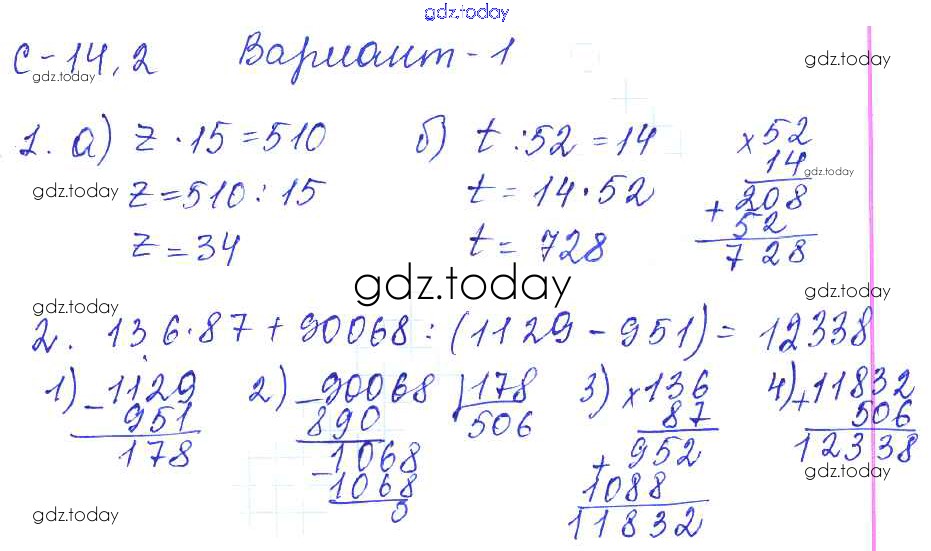 gdz.today
С-14,2 Вариант-1
gdz.today gdz.today
1. а) z · 15 = 510 б) t : 52 = 14 × 52
z = 510 : 15 t = 14 · 52 14
gdz.today gdz.today
z = 34 t = 728 + 208
52
728
gdz.today
gdz.today gdz.today
2. 136 · 87 + 90068 : (1129 - 951) = 12338
1) - 1129 2) - 90068 | 178 3) × 136 4) + 11832
951 890 506 87 506
178 - 1068 + 952 12338
gdz.today gdz.today
1068 1088
0 11832
gdz.today gdz.today